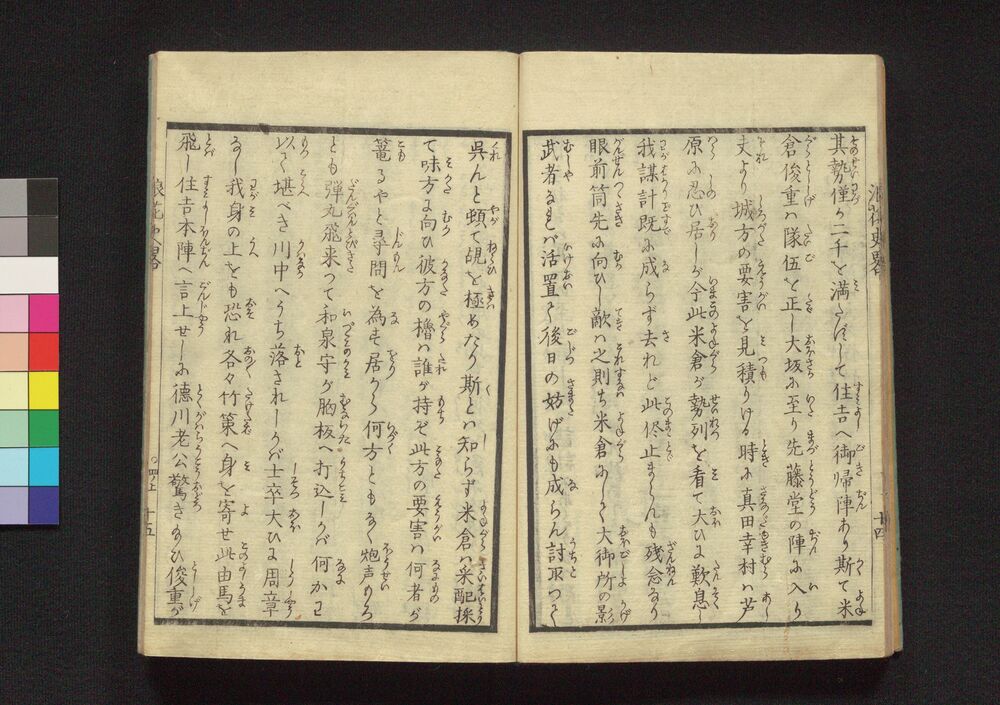 其勢僅か二千を満たずして住吉へ御帰陣あり斯て米
倉俊重ハ隊伍を正し大坂に至り先藤堂の陣に入り
夫より城方の要害を見積りける時に真田幸村ハ芦
原に忍ひ居しが今此米倉が勢列を看て大ひに歎息し
我謀計既に成らず去れど此侭止まらんも残念なり
眼前筒先に向ひし敵ハ之則ち米倉にて大御所の影
武者なれバ活置て後日の妨げにも成らん討取つて
呉んと頓て覘を極めたり斯とハ知らず米倉ハ采配採
て味方に向ひ彼方の櫓ハ誰が持ぞ此方の要害ハ何者が
篭るやと尋問を為し居から何方ともなく炮声もろ
とも弾丸飛来つて和泉守が胸板へ打込しかバ何かハ
以て堪べき川中へうち落されしかバ士卒大ひに周章
なし我身の上をも恐れ各々竹束へ身を寄せ此由馬を
飛し住吉本陣へ言上せしに徳川老公驚き給ひ俊重が
十四
四ノ上 十五